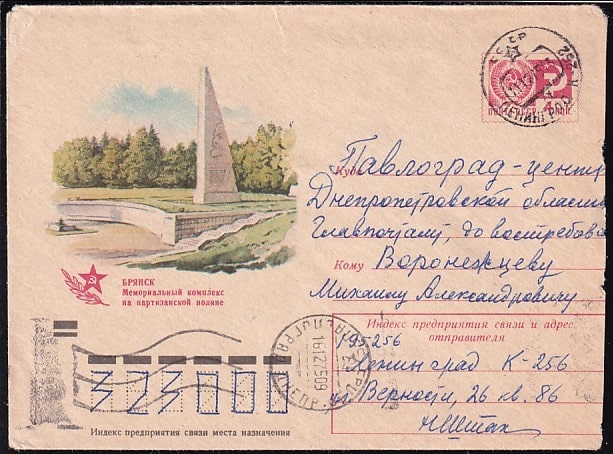 СССР
ЛЕНИНГРАД
ПОЧТА СССР
Куда Павлоград-центр
Днепропетровской области
Главпочтамт, до востребов
Кому Воронежцеву
Михаилу Александровичу
БРЯНСК
Мемориальный комплекс
на партизанской поляне
Индекс предприятия связи и адрес
отправителя
195256
Ленинград К-256
ул Верности, 26 кв. 86
323000
Индекс предприятия связи места назначения